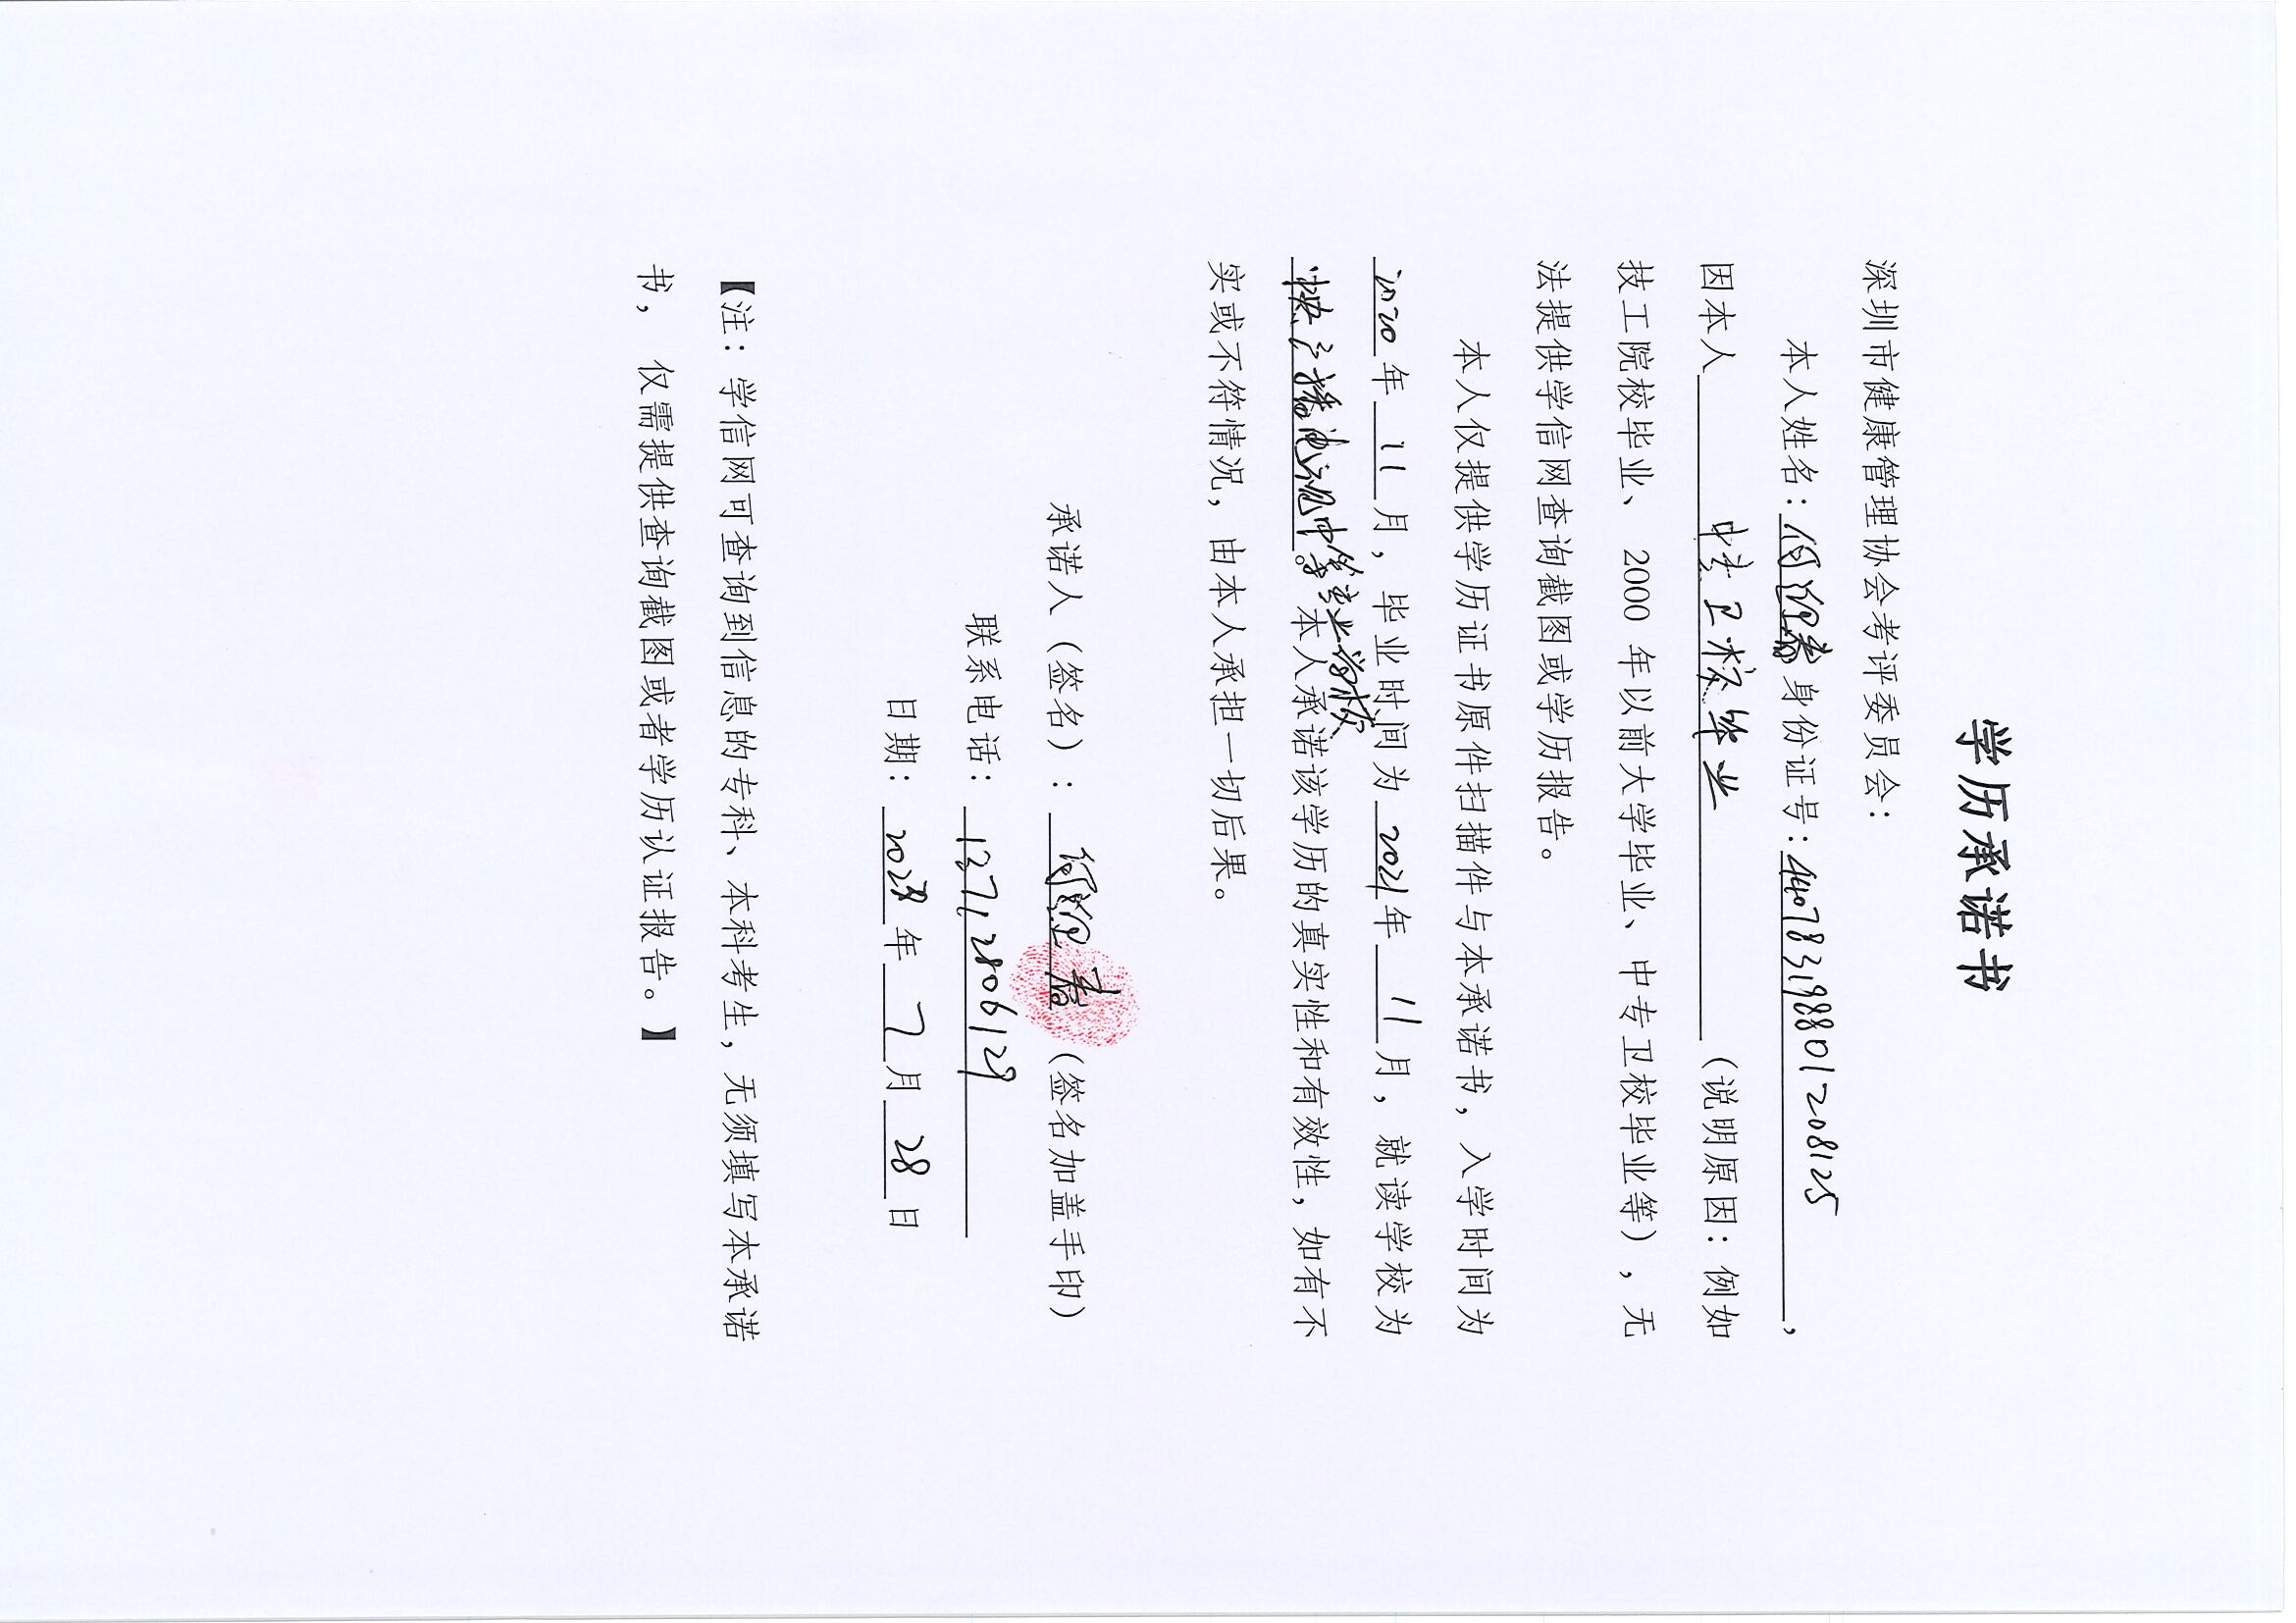 学历承诺书
深圳市健康管理协会考评委员会：
本人姓名：何 身份证号：440783198801208125，
因本人 中专卫校毕业 （说明原因：例如
技工院校毕业、 2000 年以前大学毕业、中专卫校毕业等），无
法提供学信网查询截图或学历报告。
本人仅提供学历证书原件扫描件与本承诺书，入学时间为
年 11 月，毕业时间为 2021 年 11 月，就读学校为
中等专业学校。本人承诺该学历的真实性和有效性，如有不
实或不符情况，由本人承担一切后果。
承诺人（签名）：何 （签名加盖手印）
联系电话：13712806129
日期： 年 7 月 28 日
【注：学信网可查询到信息的专科、本科考生，无须填写本承诺
书， 仅需提供查询截图或者学历认证报告。】